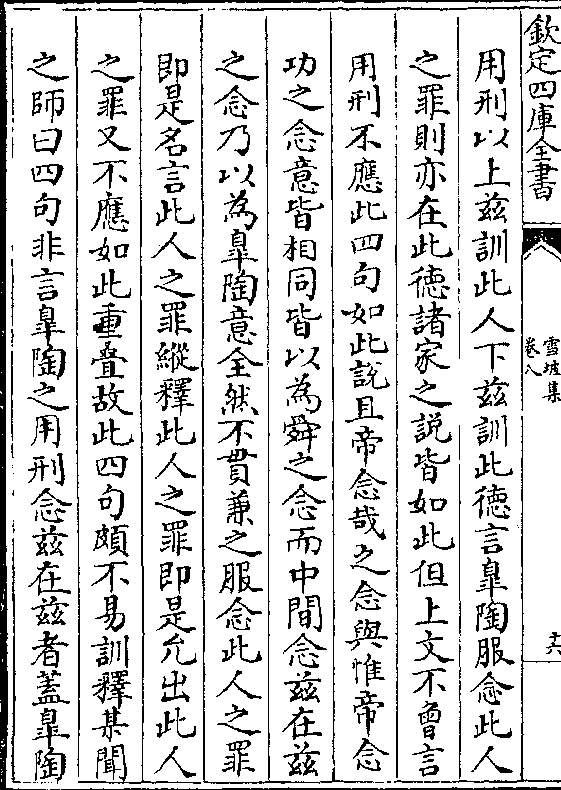 欽定四庫全書
雪坡集
卷八
十六
用刑以上兹訓此人下兹訓此徳言臯陶服念此人
之罪則亦在此徳諸家之説皆如此但上文不曾言
用刑不應此四句如此說且帝念哉之念與惟帝念
功之念意皆相同皆以為舜之念而中間念兹在兹
之念乃以為臯陶意全然不貫兼之服念此人之罪
即是名言此人之罪縱釋此人之罪即是允出此人
之罪又不應如此重疊故此四句頗不易訓釋某聞
之師曰四句非言臯陶之用刑念兹在兹者蓋臯陶